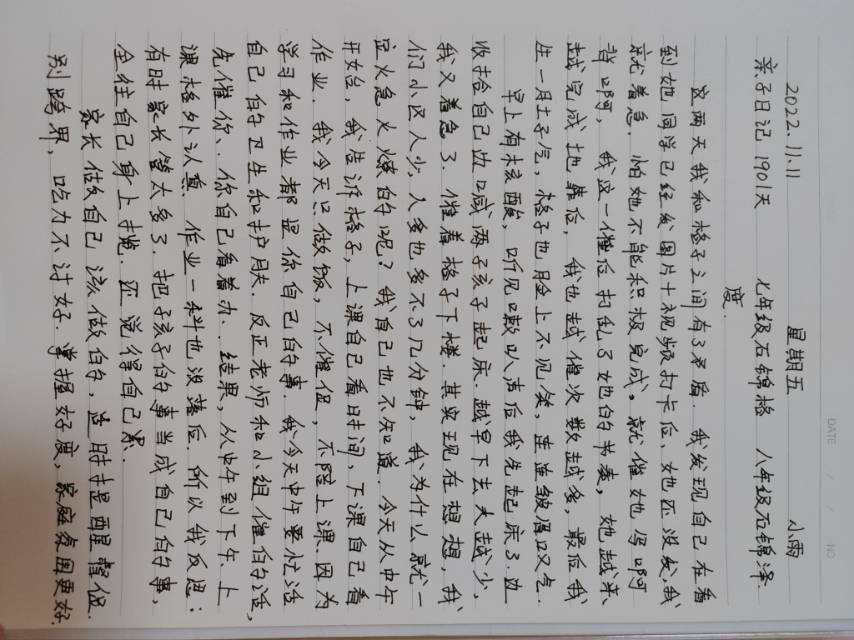 DATE / / NO
2022.11.11 星期五 小雨
亲子日记 1901天 七年级石锦格 八年级石锦泽.
度.
这两天我和格子之间有了矛盾. 我发现自己在看
到她同学已经发图片+视频打卡后, 她还没发, 我
就着急. 怕她不能积极完成. 就催她写啊
背啊, 我这一催后打乱了她的节奏, 她越来
越完成地靠后, 我也越催次数越多, 最后我
生一肚子气, 格子也脸上不见笑, 连连皱眉叹气.
早上有核酸, 听见喇叭声后我先起床了. 边
收拾自己边喊两孩子起床. 越早下去人越少,
我又着急了. 催着格子下楼. 其实现在想想, 我
们小区人少, 人多也多不了几分钟, 我为什么就一
定火急火燎的呢? 我自己也不知道. 今天从中午
开始, 我告诉格子, 上课自己看时间, 下课自己看
作业. 我今天只做饭, 不催促, 不陪上课. 因为
学习和作业都是你自己的事. 我今天中午要忙活
自己的卫生和护肤. 反正老师和小组催的话,
先催你、你自己看着办.. 结果, 从中午到下午上
课格外认真. 作业一科也没落后. 所以我反思:
有时家长管太多了. 把孩子的事当成自己的事,
全往自己身上揽. 还觉得自己累.
家长做自己该做的, 适时提醒督促.
别跨界, 吃力不讨好. 掌握好度, 家庭氛围更好.